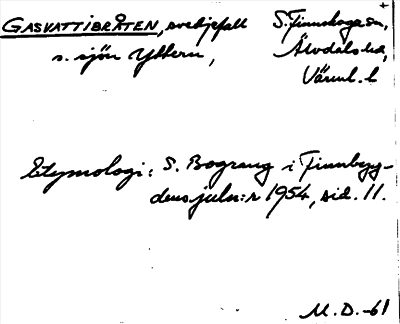 GASVATTIBRÅTEN, svedjefall
s. sjön Yttern,
S. Finnskoga sn,
Älvdals hd,
Värml. l.
Etymologi: S. Bograng i Finnbyg-
dens julnr 1954, sid. 11.
M.D. -61